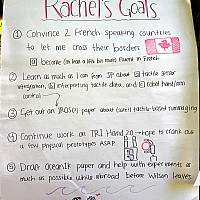 Rachel's Goals
① Convince 2 French speaking countries
to let me cross their borders
□ Become (at least a little bit more) fluent in French
② Learn as much as I can from JP about □ tactile sensor
integration, □ interpreting tactile data, and □ robot hand/arm
control
③ Get out an paper about tactile-based rummaging
④ Continue work on TRI Hand 2.0 → hope to crank out
a few physical prototypes ASAP
⑤ Draft OceanIX paper and help with experiments as
much as possible while abroad before Wilson leaves